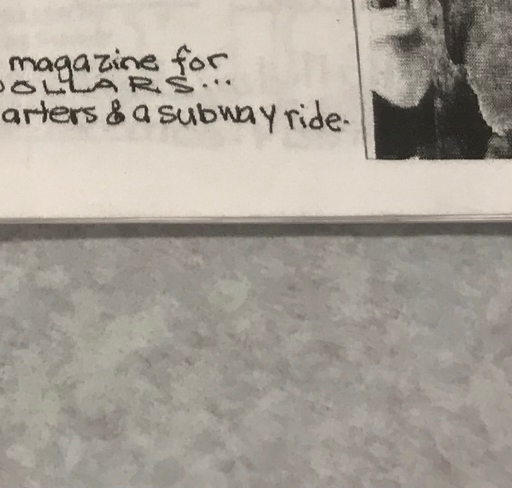 magazine for
DOLLARS...
arters & a subway ride.